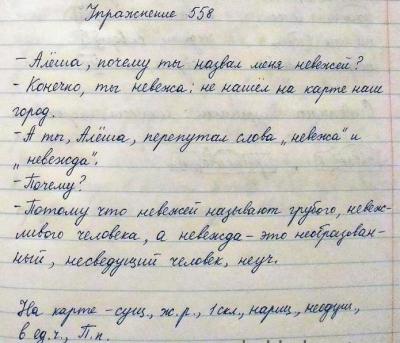 Упражнение 558.
- Алёша, почему ты назвал меня невежей?
- Конечно, ты невежа: не нашёл на карте наш
город.
- А ты, Алёша, перепутал слова „невежа" и
„невежда".
- Почему?
- Потому что невежей называют грубого, невеж-
ливого человека, а невежда - это необразован-
ный, несведущий человек, неуч.
На карте - сущ., ж.р., 1 скл., нариц., неодуш.,
в ед.ч., П.п.